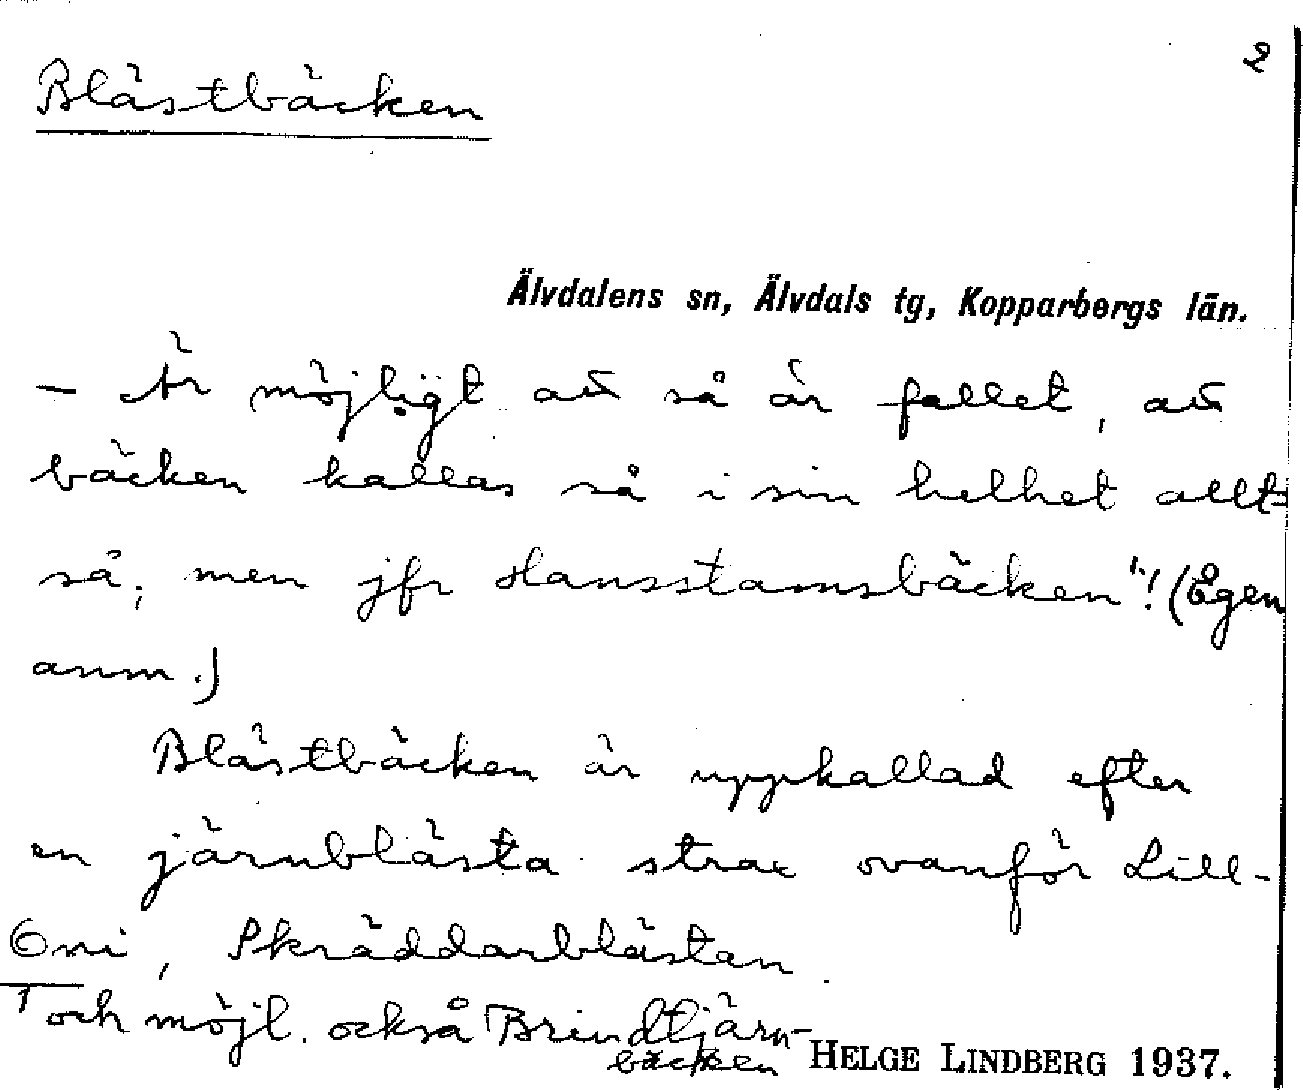 2
Blästbäcken
Älvdalens sn, Älvdals tg, Kopparbergs län.
— Är möjligt att så är fallet, att
bäcken kallas så i sin helhet allt=
så, men jfr Hansstamsbäcken"! (Egen
anm.)
Blästbäcken är uppkallad efter
en järnblästa strax ovanför Lill-
Emi, Skräddarblästan.
1 och möjl. också Brindtjärn-
bäcken
HELGE LINDBERG 1937.